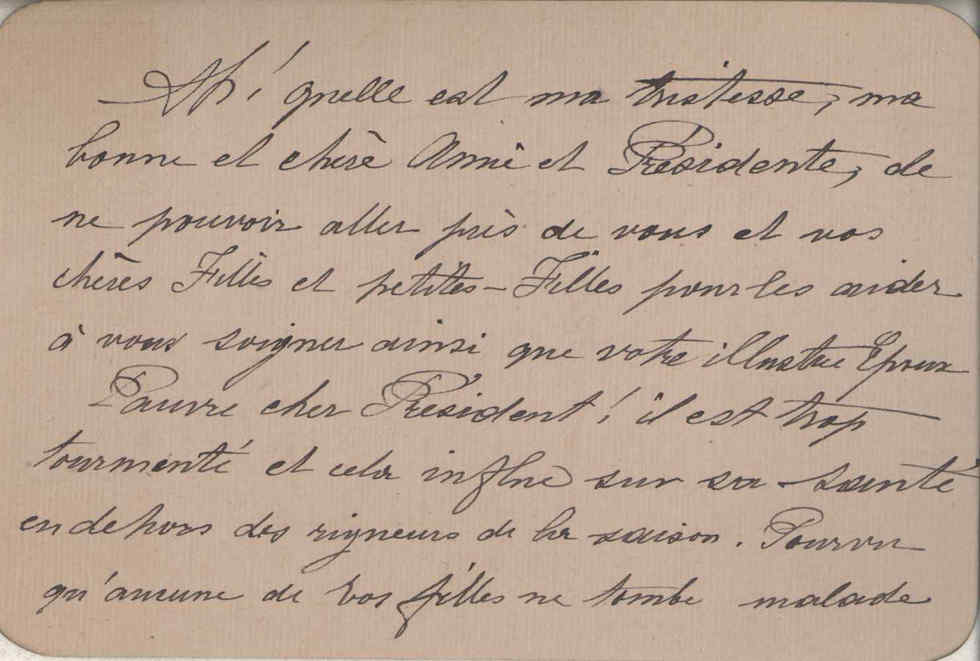 Ah! quelle est ma tristesse, ma
bonne et chère Amie et Présidente, de
ne pouvoir aller près de vous et vos
chères Filles et petites-Filles pour les aider
à vous soigner ainsi que votre illustre Epoux
Pauvre cher Président! il est trop
tourmenté et cela influe sur sa santé
en dehors des rigueurs de la saison. Pourvu
qu'aucune de vos filles ne tombe malade